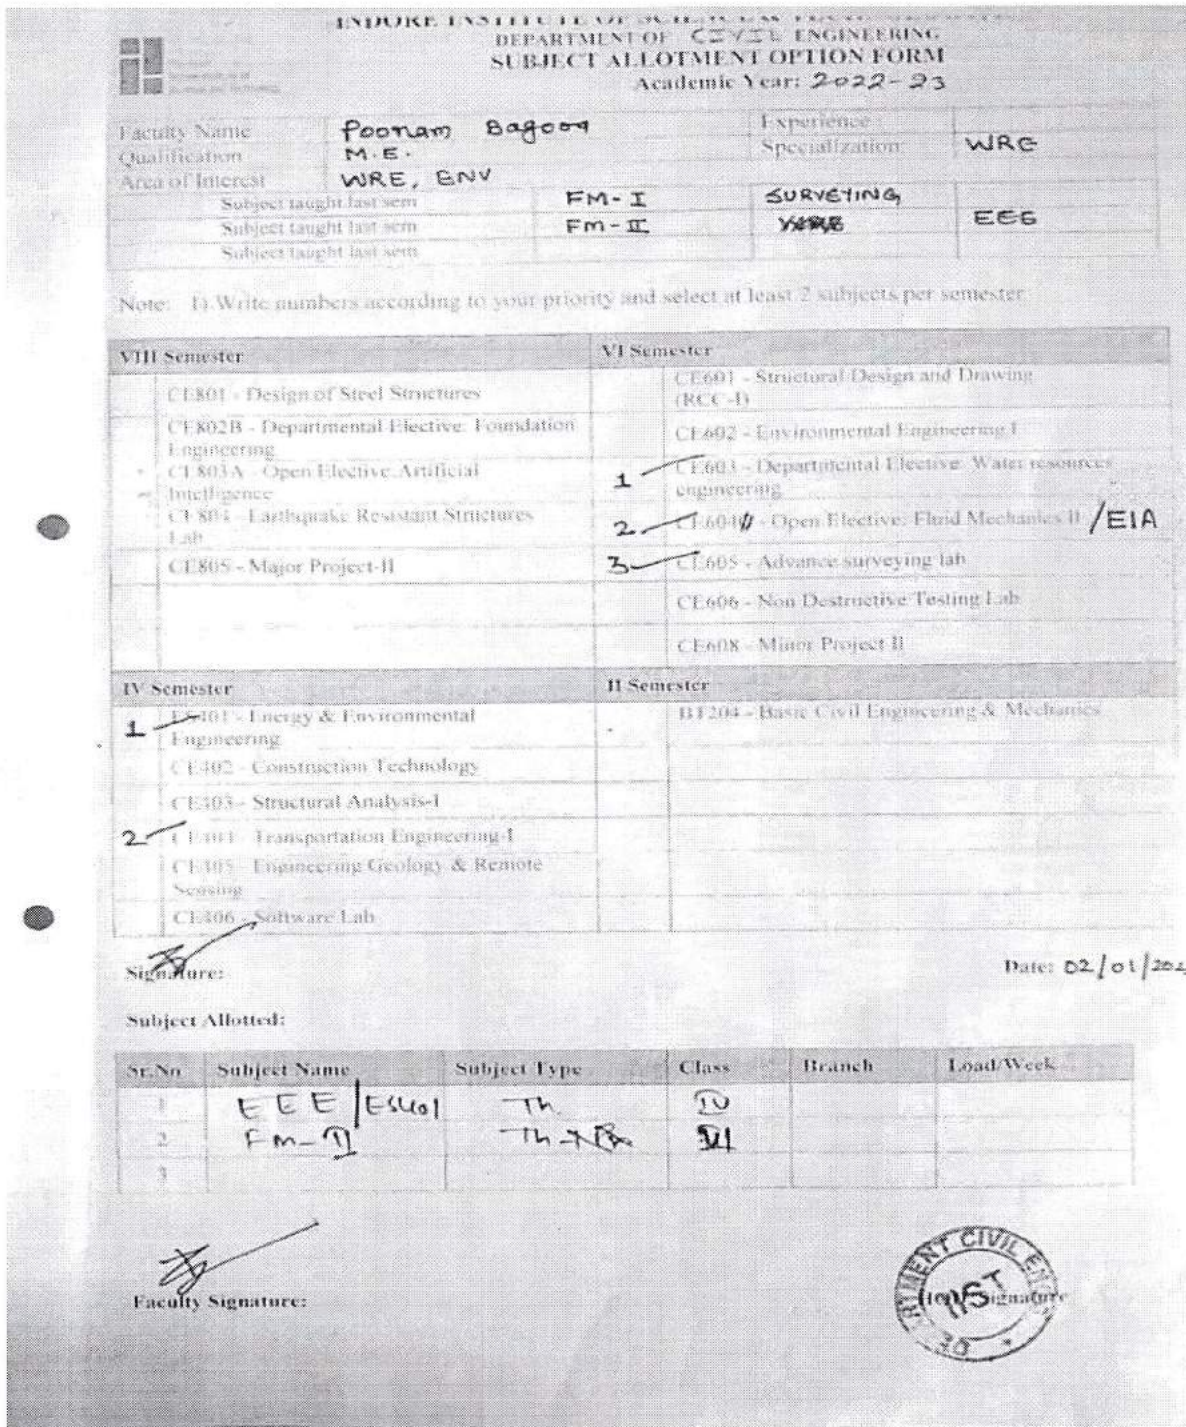 INDORE INSTITUTE OF SCIENCE &
DEPARTMENT OF CIVIL ENGINEERING
SUBJECT ALLOTMENT OPTION FORM
Academic Year: 2022-23
Faculty Name Poonam Experience :
Qualification M.E. Specialization: WRE
Area of Interest WRE, ENV
Subject taught last sem FM-I SURVEYING,
Subject taught last sem FM-II EEE
Subject taught last sem
Note: 1) Write numbers according to your priority and select at least 2 subjects per semester
VIII Semester VI Semester
CE801 - Design of Steel Structures CE601 - Structural Design and Drawing
(RCC-I)
CE802B - Departmental Elective: Foundation
Engineering CE602 - Environmental Engineering I
CE803A - Open Elective: Artificial
Intelligence 1 CE603 - Departmental Elective: Water resources
engineering
CE804 - Earthquake Resistant Structures
Lab 2 CE604 - Open Elective: Fluid Mechanics II /EIA
CE805 - Major Project-II 3 CE605 - Advance surveying lab
CE606 - Non Destructive Testing Lab
CE608 - Minor Project II
IV Semester II Semester
1 ES401 - Energy & Environmental
Engineering BT204 - Basic Civil Engineering & Mechanics
CE402 - Construction Technology
CE403 - Structural Analysis-I
2 CE404 - Transportation Engineering-I
CE405 - Engineering Geology & Remote
Sensing
CE406 - Software Lab
Signature: Date: 02/01/202
Subject Allotted:
Sr.No Subject Name Subject Type Class Branch Load/Week
1 EEE/ES401 Th. IV
2 FM-II Th VI
3
Faculty Signature: HOD Signature
DEPARTMENT CIVIL ENG
IIST